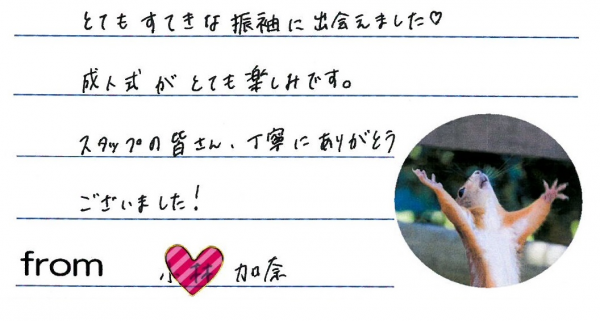 とてもすてきな振袖に出会えました♡
成人式がとても楽しみです。
スタップの皆さん、丁寧にありがとう
ございました！
from 小林 加奈